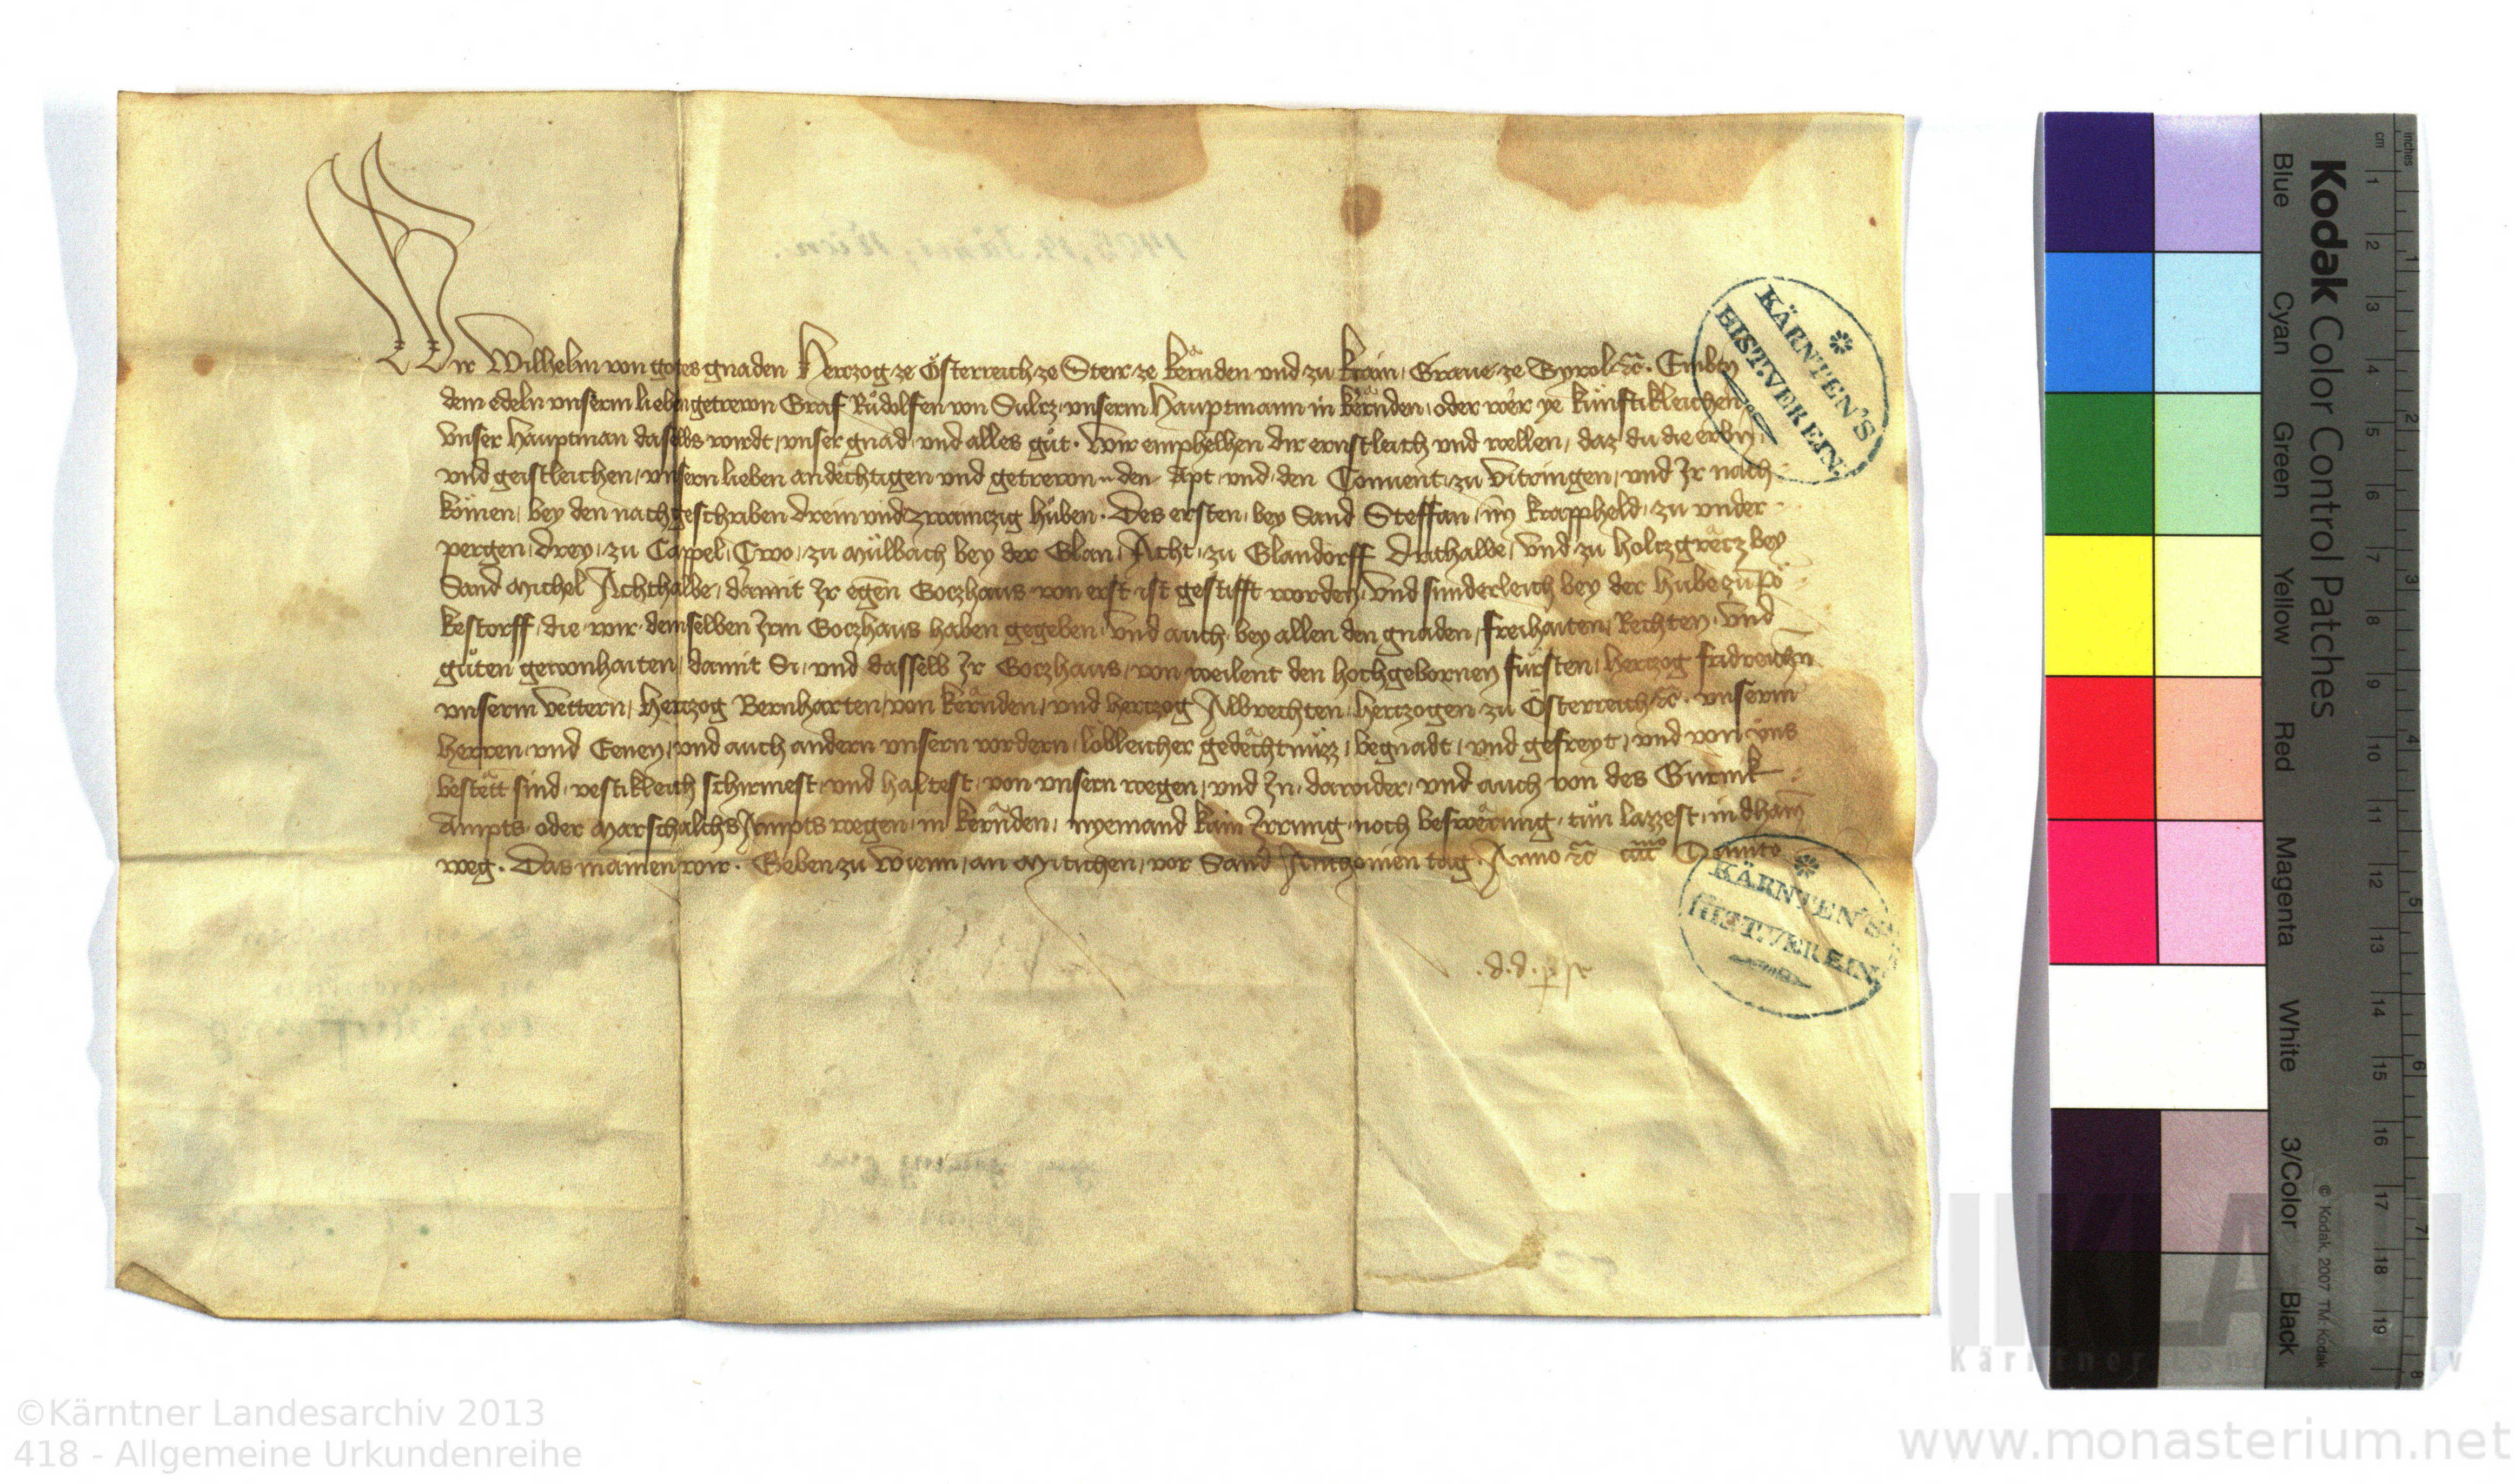 Wir Wilhelm von gotes gnaden Herczog ze Österreich ze Steir ze Kernden vnd zu Krain, Graue ze Tyrol etc. Embten
dem edeln vnserm lieben getrewn Graf Rudolfen von Sulcz, vnserm Hauptmann in Kernden, oder wer ye künftikleichen
vnser Hauptman daselbs wirdt, vnser gnad, vnd alles gut. Wir emphelhen dir ernstleich vnd wellen, daz du die erbn,
vnd geistleichen, vnsern lieben andechtigen vnd getrewn den Apt vnd den Conuent zu Vitringen, vnd Ir nach
komen, bey den nachgeschriben drein vnd zwainczig huben. Des ersten, bey Sand Steffan, im Krappheld, zu vnder
pergen, drey, zu Cappel, Two, zu Mülbach bey der Glan, Acht, zu Glandorff Drithalbe, vnd zu Holtzgrecz bey
Sand Michel Achthalbe, damit Ir egen Goczhaus von erst ist gestifft worden, vnd sunderleich bey der Hube zu
kestorff, die wir demselben Irm Goczhaus haben gegeben, vnd auch bey allen den gnaden, freihaiten, Rechten, vnd
guten gewonhaiten, damit Si, vnd dasselb Ir Goczhaus, von weilent den hochgebornen fürsten, herczog fridreichn
vnserm Vettern, Herczog Bernharten, von Kernden, vnd herczog Albrechten, herczogen zu Österreich etc. vnserm
herren vnd Eenen, vnd auch andern vnsern vordern, löbleicher gedechtnüzz, begnadt, vnd gefreyt, vnd von vns
bestett sind, vestikleich schirmest, vnd haltest, von vnsern wegen, vnd In, dawider, vnd auch von des
Ampts oder Marschalchs Ampts wegen, in Kernden, nyemand kain Irrung noch beswerung, tun lazzest, in dhain
weg. Das mainen wir. Geben zu Wienn, an Mitichen, vor Sand Anthonien tag. Anno etc. Quinto
.d.d. p se
KÄRNTEN'S
HIST.VEREIN.
KÄRNTEN'S
HIST.VEREIN.
Kodak Color Control Patches
Blue Cyan Green Yellow Red Magenta White 3/Color Black
cm 1 2 3 4 5 6 7 8 9 10 11 12 13 14 15 16 17 18 19
inches 1 2 3 4 5 6 7 8
© Kodak, 2007 TM: Kodak
©Kärntner Landesarchiv 2013
418 - Allgemeine Urkundenreihe
www.monasterium.net